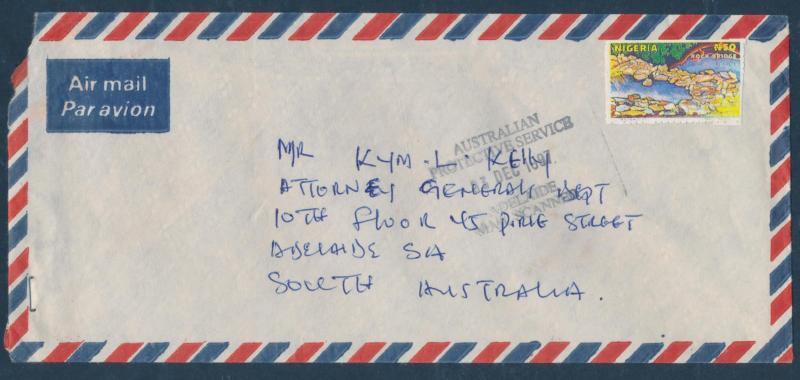 Air mail
Par avion
NIGERIA N50
ROCK BRIDGE
AUSTRALIAN
PROTECTIVE SERVICE
DEC 1997
ADELAIDE
MAIL SCANNED
MR KYM. L KELLY
ATTORNEY GENERALS DEPT
10TH FLOOR 45 PIRIE STREET
ADELAIDE SA
SOUTH AUSTRALIA.